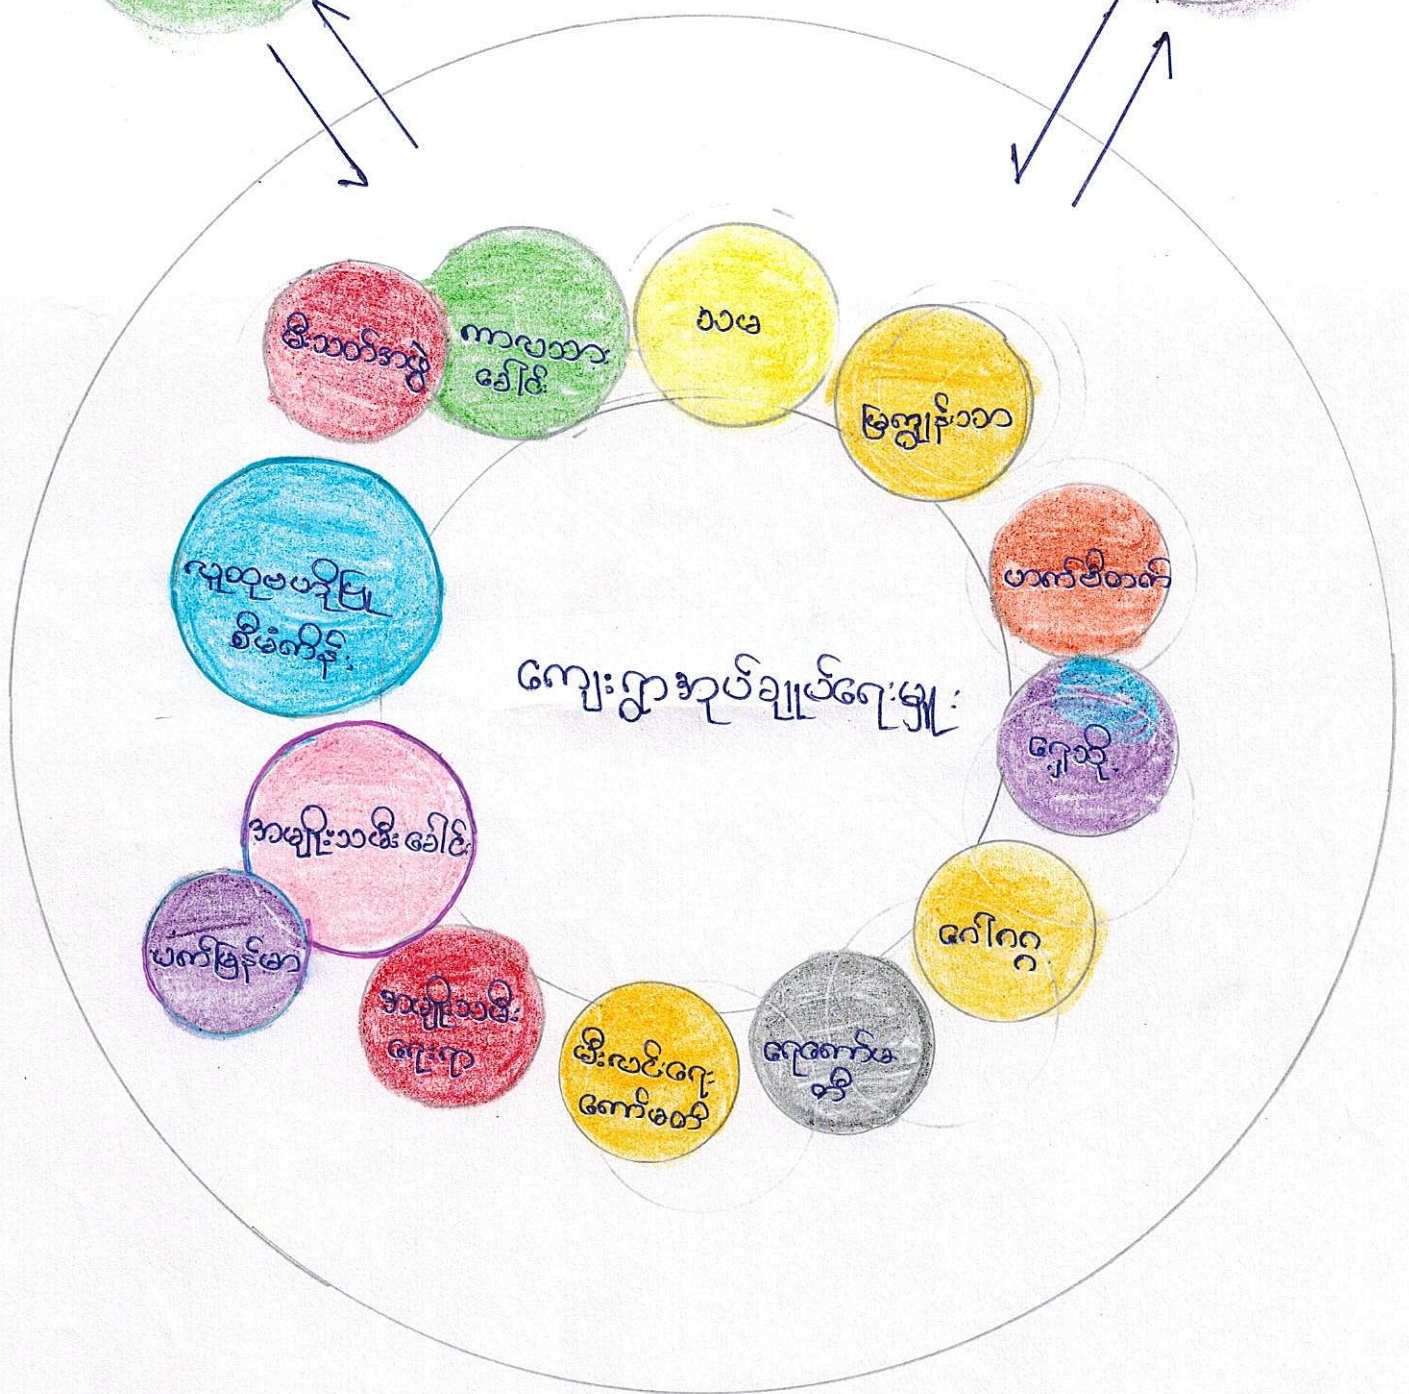 မီးသတ်အဖွဲ့
ကာလသား
ခေါင်း
သမ
မြကျွန်းသာ
ဟက်ဗီတက်
ရှေ့သို့
ဂေါပဂ
ရေကော်မ
တီ
မီးလင်းရေး
ကော်မတီ
အမျိုးသမီး
ရေးရာ
ပက်မြန်မာ
အမျိုးသမီးခေါင်း
လူထုဗဟိုပြု
စီမံကိန်း
ကျေးရွာအုပ်ချုပ်ရေးမှူး